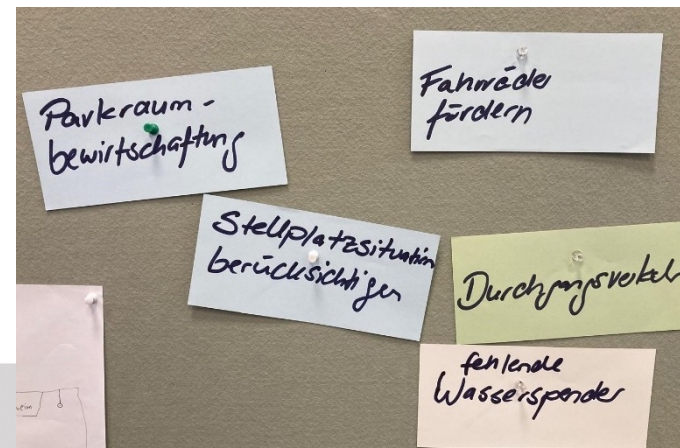 Parkraum-
bewirtschaftung
Fahrräder
fördern
Stellplatzsituation
berücksichtigen
Durchgangsverkehr
fehlende
Wasserspender